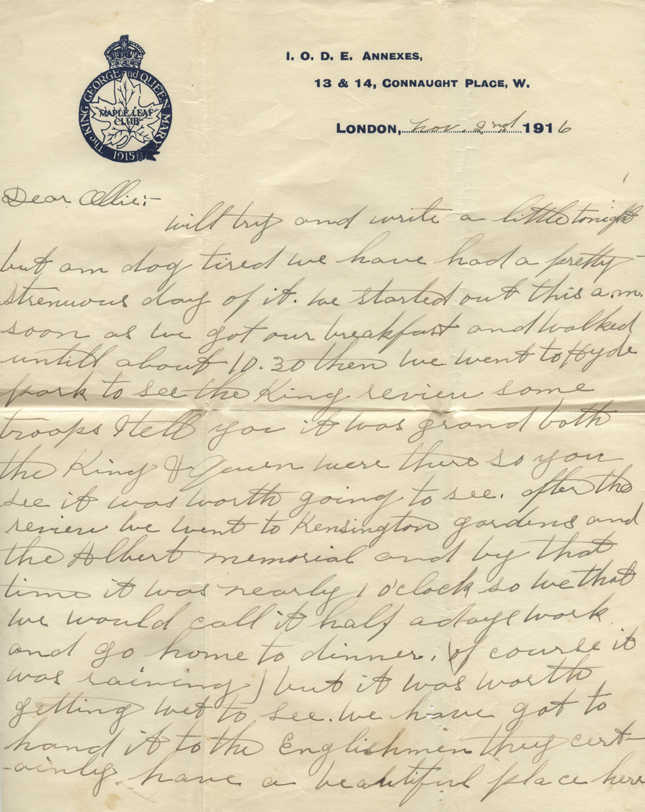 The KING GEORGE and QUEEN MARY
MAPLE LEAF
CLUB
1915
I. O. D. E. ANNEXES,
13 & 14, CONNAUGHT PLACE, W.
LONDON, Nov. 2nd 1916
Dear Ollie:-
will try and write a little tonight
but am dog tired we have had a pretty
strenuous day of it. we started out this a.m.
soon as we got our breakfast and walked
untill about 10.30 then we went to Hyde
park to see the King review some
troops I tell you it was grand both
the King & Queen were there so you
see it was worth going to see. after the
review we went to Kensington gardens and
the Albert memorial and by that
time it was nearly 1 o'clock so we that
we would call it half a days work
and go home to dinner. (of course it
was raining) but it was worth
getting wet to see. we have got to
hand it to the Englishmen they cert-
-ainly have a beautiful place here